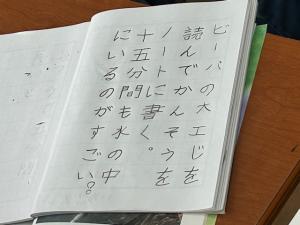 ビーバーの大工じを
読んでかんそうを
ノートに書く。
十五分間も水の中
にいるのがすごい。